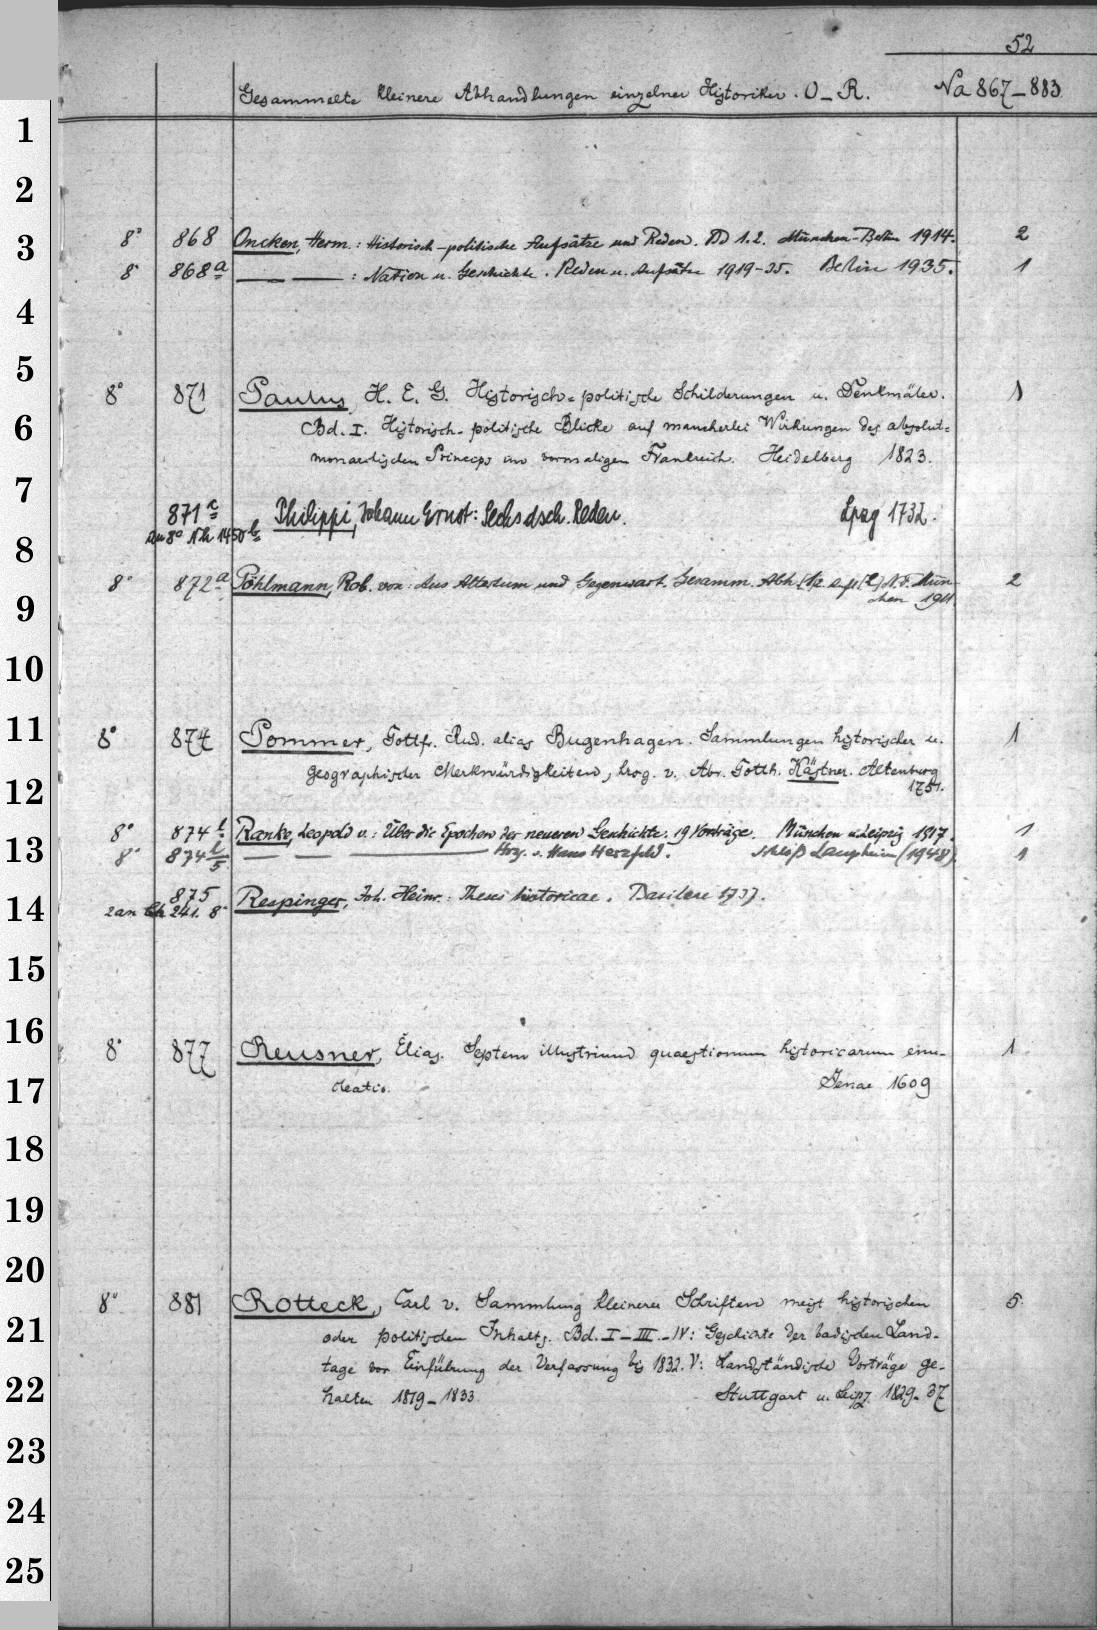 52
Gesammelte kleinere Abhandlungen einzelner Historiker. O–R. Na 867–883
1
2
3 8° 868 Oncken, Herm.: Historisch-politische Aufsätze und Reden. Bd 1.2. München-Berlin 1914. 2
8° 868a — — : Nation u. Geschichte. Reden u. Aufsätze 1919–35. Berlin 1935. 1
4
5
8° 871 Paulus, H. E. G. Historisch-politische Schilderungen u. Denkmäler. 1
6 Bd. I. Historisch-politische Blicke auf mancherlei Wirkungen des absolut-
monarchischen Princips im vormaligen Frankreich. Heidelberg 1823.
7
871c Philippi, Johann Ernst: Sechs dsch. Reden. Lpzg 1732.
an 8° Nh 1450b
8
8° 872a Pöhlmann, Rob. von: Aus Altertum und Gegenwart. Gesamm. Abh. N.F. Mün- 2
9 chen 1911.
10
11 8° 874 Pommer, Gottfr. Rud. alias Bugenhagen. Sammlungen historischer u. 1
geographischer Merkwürdigkeiten, hrog. v. Abr. Gotth. Kästner. Altenburg
12 1751.
8° 874b Ranke, Leopold v.: Über die Epochen der neueren Geschichte. 19 Vorträge. München u. Leipzig 1917. 1
13 8° 874b/5 — — — Hrg. v. Hans Herzfeld. Schloß Laupheim (1948) 1
875 Respinger, Joh. Heinr.: Theses historicae. Basileae 1737.
14 2 an 241. 8°
15
16
8° 877 Reusner, Elias. Septem illustrium quaestionum historicarum enu- 1
17 cleatio. Jenae 1609
18
19
20
8° 881 Rotteck, Carl v. Sammlung kleinerer Schriften meist historischen 5.
21 oder politischen Inhalts. Bd. I–III.–IV: Geschichte der badischen Land-
tage von Einführung der Verfassung bis 1832. V: Landständische Vorträge ge-
22 halten 1819–1833. Stuttgart u. Leipz. 1829–37
23
24
25